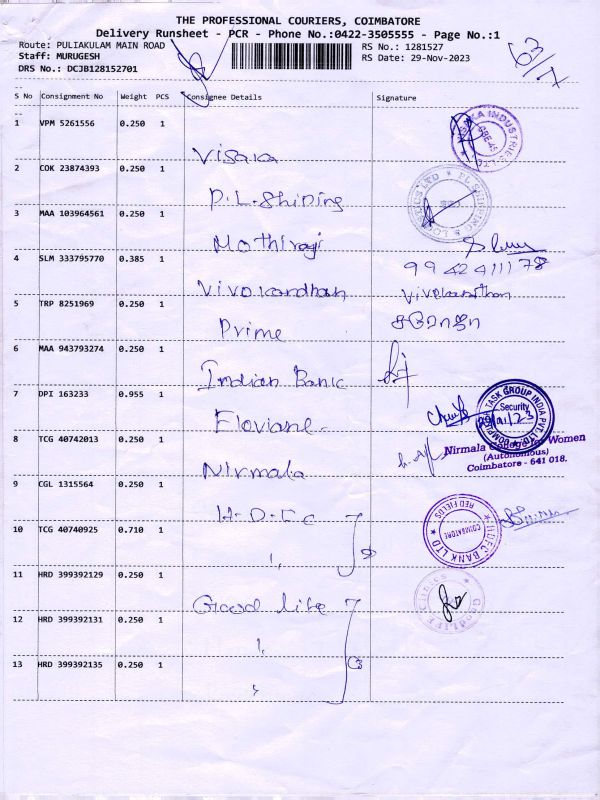 THE PROFESSIONAL COURIERS, COIMBATORE
Delivery Runsheet - PCR - Phone No.:0422-3505555 - Page No.:1
Route: PULIAKULAM MAIN ROAD RS No.: 1281527
Staff: MURUGESH RS Date: 29-Nov-2023
DRS No.: DCJB128152701
63/7
S No Consignment No Weight PCS Consignee Details Signature
1 VPM 5261556 0.250 1
Visaka
2 COK 23874393 0.250 1
P.L. Shiping
3 MAA 103964561 0.250 1
Mothiragi
4 SLM 333795770 0.385 1
99424 11178
Vivekandhan
5 TRP 8251969 0.250 1
Prime சரோஜா
6 MAA 943793274 0.250 1
Indian Bank
7 DPI 163233 0.955 1
TASK GROUP INDIA PVT LTD
Security
29/11/23
Floviane
8 TCG 40742013 0.250 1
Nirmala College for Women
(Autonomous)
Coimbatore - 641 018.
Nirmala
9 CGL 1315564 0.250 1
H-D-F-C
HDFC BANK LTD
COIMBATORE
RED FIELDS
10 TCG 40740925 0.710 1
11 HRD 399392129 0.250 1
Good life
12 HRD 399392131 0.250 1
13 HRD 399392135 0.250 1